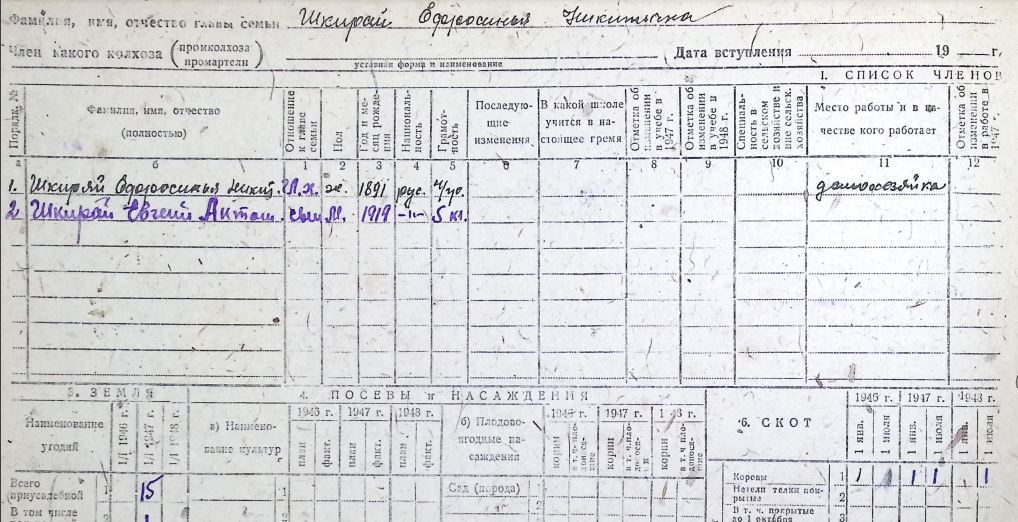 Фамилия, имя, отчество главы семьи Шкирай Ефросинья Никитична
Член какого колхоза (промколхоза промартели) Дата вступления 19 г.
уставная форма и наименование
I. СПИСОК ЧЛЕНОВ
Порядк. № Фамилия, имя, отчество (полностью) Отношение к главе семьи Пол Год и месяц рождения Националь-ность Грамот-ность Последую-щие изменения В какой школе учится в на-стоящее время Отметка об изменении в учебе в 1947 г. Отметка об изменении в учебе в 1948 г. Специаль-ность в сельском хозяйстве и вне сельск. хозяйства Место работы и в ка-честве кого работает Отметка об изменении в работе в 1947 г.
а б 1 2 3 4 5 6 7 8 9 10 11 12
1. Шкирай Ефросинья Никит. Гл.х. ж. 1891 рус. н/гр. домохозяйка
2 Шкирай Евгений Антон. сын М. 1919 -"- 5 кл.
3. ЗЕМЛЯ 4. ПОСЕВЫ и НАСАЖДЕНИЯ
Наименование угодий 1/I 1946 г. 1/I 1947 г. 1/I 1948 г. а) Наимено-вание культур 1946 г. 1947 г. 1948 г. план факт. план факт. план факт.
б) Плодово-ягодные на-саждения 1946 г. 1947 г. корни в т. ч. пло-донося-щие корни корни в т. ч. пло-донося-щие
6. СКОТ 1946 г. 1947 г. 1948 г. 1 янв. 1 июля 1 янв. 1 июля 1 янв. 1 июля
Всего приусадебной 15 1 Сад (порода) 1 Коровы 1 1 1 1 1 1
Нетели телки пок-рытые 2
В том числе 2 2 В т. ч. покрытые до 1 октября 3